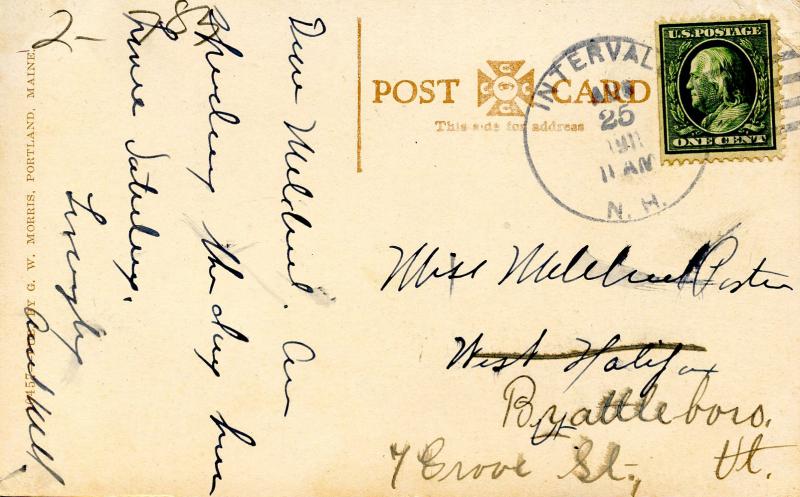 Dear Mildred. Am
spending the day here
Leave Saturday.
Lovingly
Aunt Nell.
BY G. W. MORRIS, PORTLAND, MAINE.
POST CARD
This side for address
INTERVALE
25
1911
11 AM
N. H.
U.S. POSTAGE
ONE CENT
Miss Mildred Porter
West Halifax
Brattleboro.
Vt
7 Grove St., Vt.